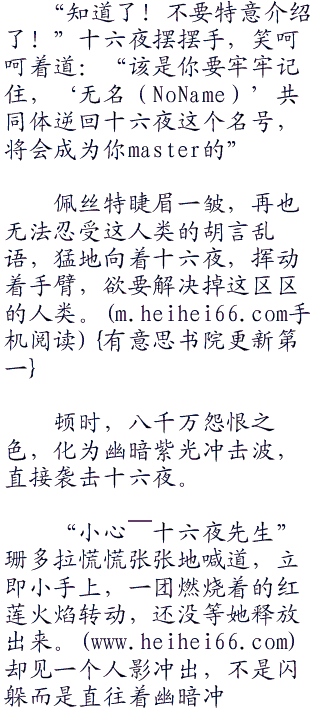 “知道了！不要特意介绍
了！”十六夜摆摆手，笑呵
呵着道：“该是你要牢牢记
住，‘无名（NoName）’共
同体逆回十六夜这个名号，
将会成为你master的”
佩丝特睫眉一皱，再也
无法忍受这人类的胡言乱
语，猛地向着十六夜，挥动
着手臂，欲要解决掉这区区
的人类。(m.heihei66.com手
机阅读){有意思书院更新第
一}
顿时，八千万怨恨之
色，化为幽暗紫光冲击波，
直接袭击十六夜。
“小心——十六夜先生”
珊多拉慌慌张张地喊道，立
即小手上，一团燃烧着的红
莲火焰转动，还没等她释放
出来。(www.heihei66.com)
却见一个人影冲出，不是闪
躲而是直往着幽暗冲